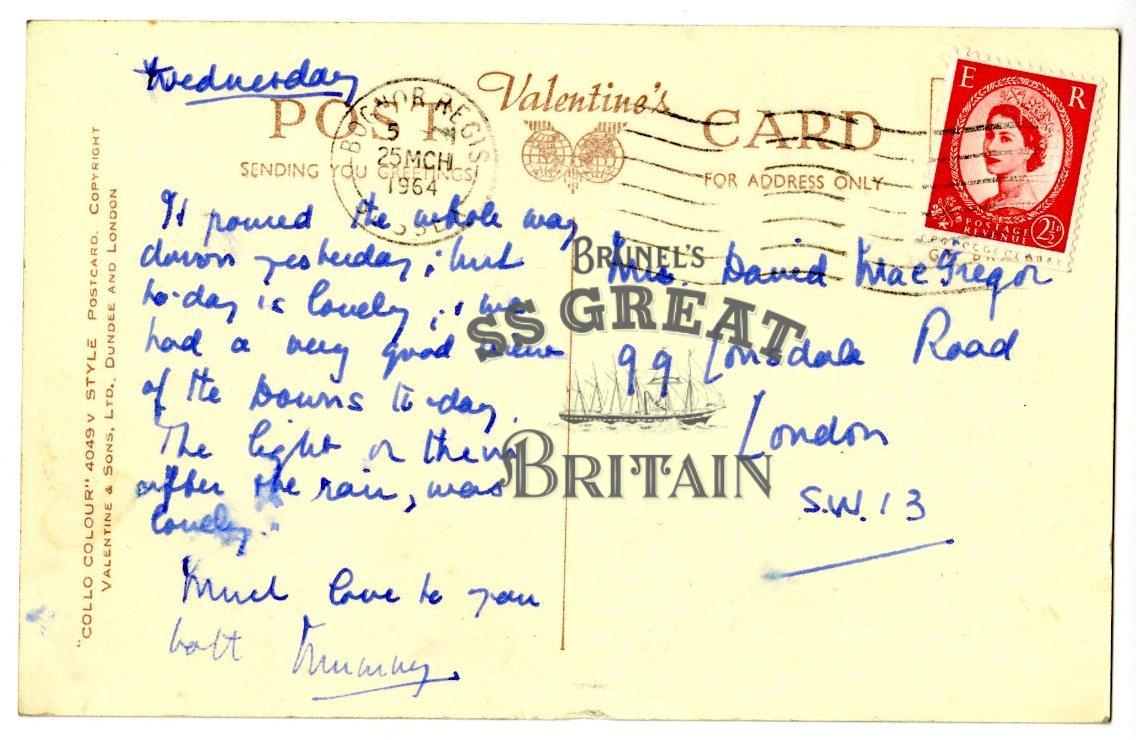 Wednesday
POST Valentine's CARD
SENDING YOU GREETINGS
FOR ADDRESS ONLY
BOGNOR REGIS
5
25 MCH
1964
SUSSEX
E R
POSTAGE
REVENUE
2½D
It poured the whole way
down yesterday; but
to-day is lovely; we
had a very good view
of the Downs to-day.
The light on them
after the rain, was
lovely.
Much love to you
both Mummy.
Mrs. David MacGregor
99 Lonsdale Road
London
S.W.13
BRUNEL'S
SS GREAT
BRITAIN
"COLLO COLOUR" 4049 V STYLE POSTCARD. COPYRIGHT
VALENTINE & SONS, LTD., DUNDEE AND LONDON